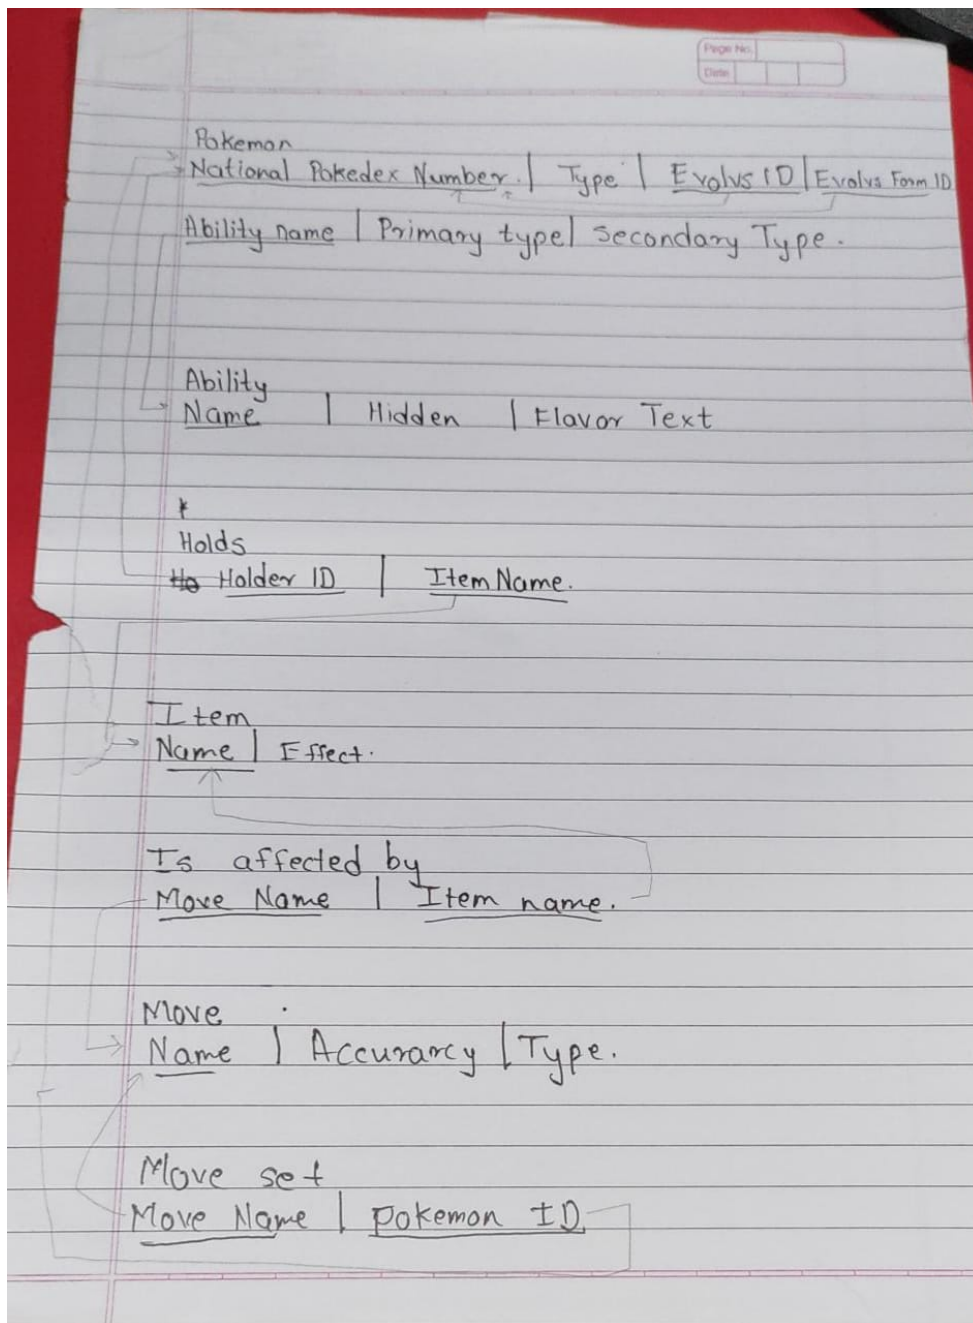 Page No.
Date
Pokemon
National Pokedex Number. | Type | Evolvs ID | Evolvs Form ID
Ability name | Primary type | Secondary Type.
Ability
Name | Hidden | Flavor Text
Holds
Ho Holder ID | Item Name.
Item
Name | Effect.
Is affected by
Move Name | Item name.
Move
Name | Accurarcy | Type.
Move set
Move Name | Pokemon ID